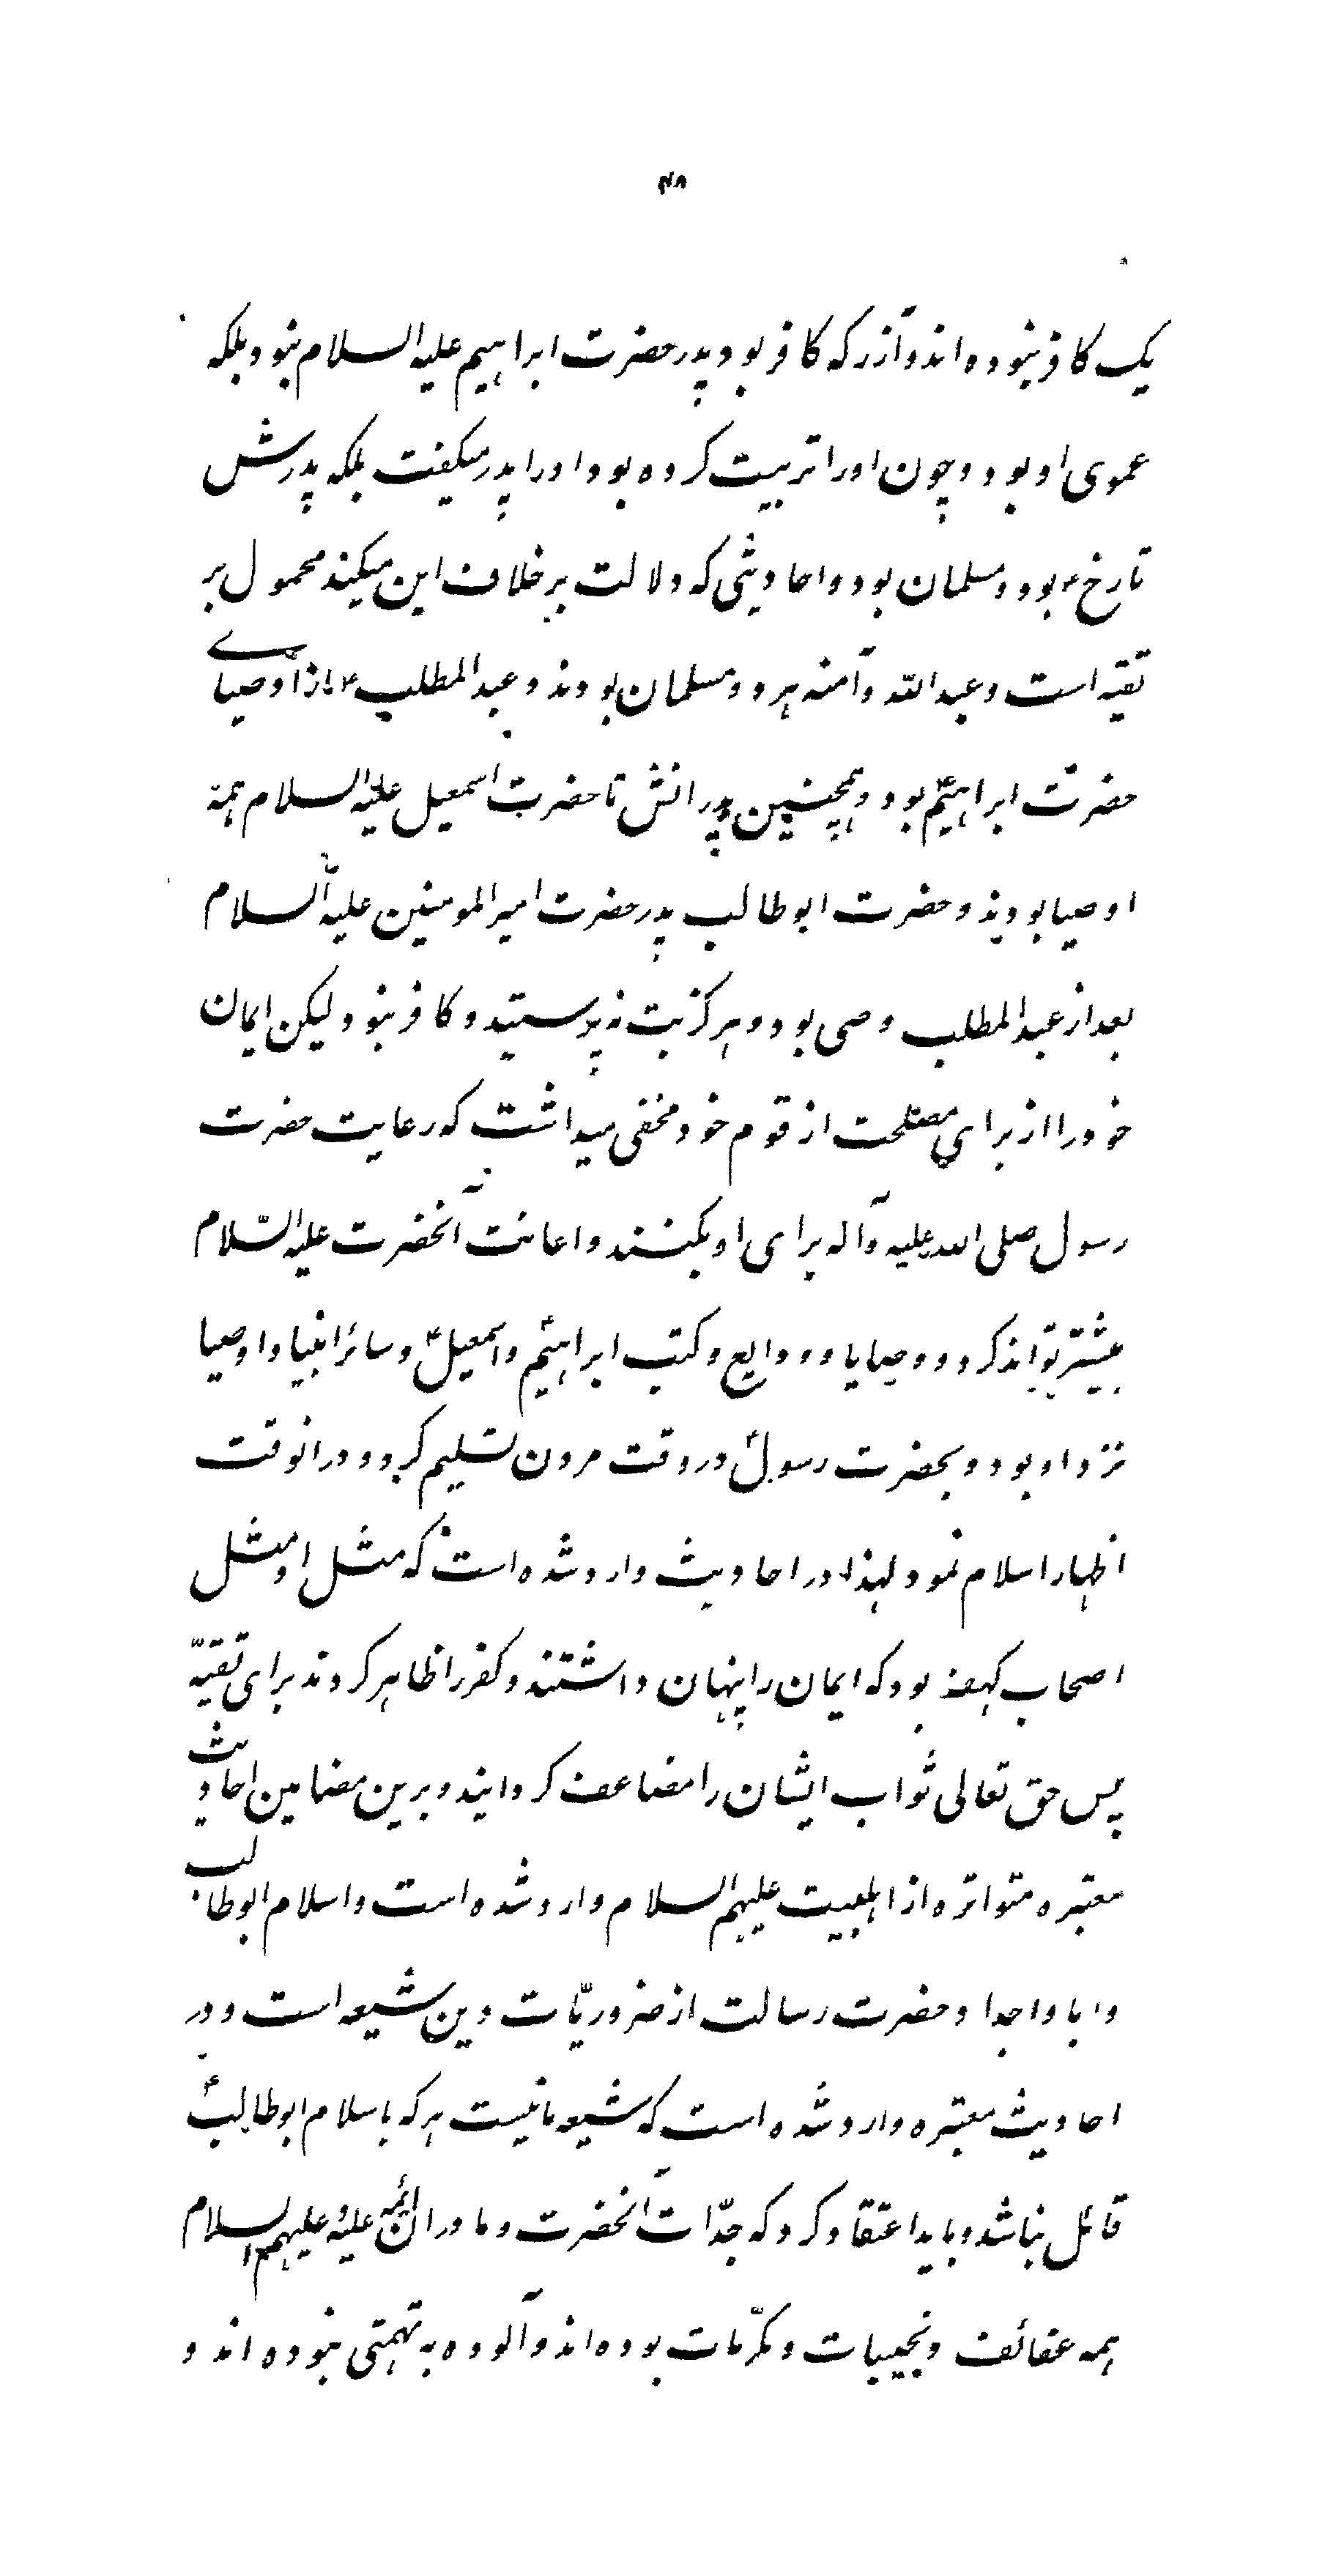 ۴۸
یک کافر نبوده اند و آزر که کافر بود پدر حضرت ابراهیم علیه السلام نبود بلکه
عموی او بود و چون اورا تربیت کرده بود اورا پدر میگفت بلکه پدرش
تارخ ؑ بود و مسلمان بود و احادیثی که دلالت بر خلاف این میکند محمول بر
تقیه است و عبدالله و آمنه هر دو مسلمان بودند و عبدالمطلب ؑ از اوصیاے
حضرت ابراهیمؑ بود و همچنین پدرانش تا حضرت اسمعیل علیه السلام همه
اوصیا بودند و حضرت ابوطالب پدر حضرت امیرالمومنین علیه السلام
بعد از عبدالمطلب وصی بود و هرگز بت نه پرستید و کافر نبود لیکن ایمان
خود را از برای مصلحت از قوم خود مخفی میداشت که رعایت حضرت
رسول صلی الله علیه و آله برای او بکنند و اعانت آنحضرت علیه السّلام
بیشتر تواند کرد و وصایا و ودایع و کتب ابراهیمؑ و اسمعیلؑ و سائر انبیا و اوصیا
نزد او بود و بحضرت رسولؐ در وقت مردن تسلیم کرد و درانوقت
اظهار اسلام نمود لهذا در احادیث وارد شده است که مثل او مثل
اصحاب کهف بود که ایمان را پنهان داشتند و کفر را ظاهر کردند برای تقیّه
پس حق تعالی ثواب ایشان را مضاعف گردانید و برین مضامین احادیث
معتبره متواتره از اهلبیت علیهم السلام وارد شده است و اسلام ابوطالب
و ابا و اجداد حضرت رسالت از ضروریّات دین شیعه است و در
احادیث معتبره وارد شده است که شیعه ما نیست هر که باسلام ابوطالبؑ
قائل نباشد و باید اعتقاد کرد که جدّات آنحضرت و مادران ائمه علیه و علیهم السلام
همه عفائف و نجیبات و مکرّمات بوده اند و آلوده به تهمتی نبوده اند و